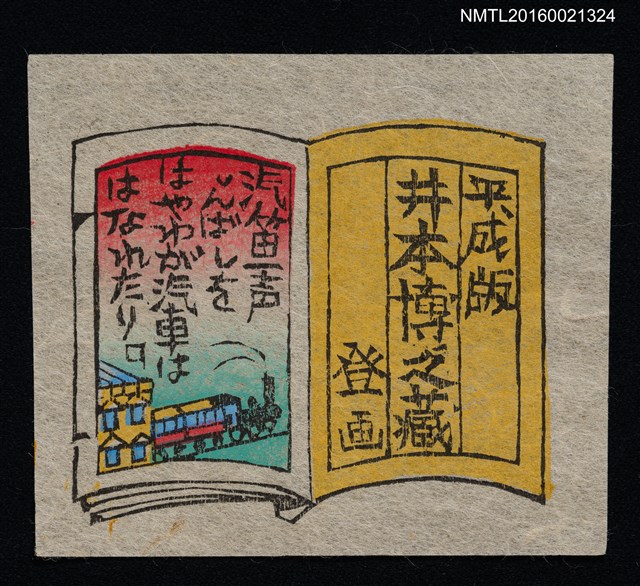 NMTL20160021324
平成版
井本博之藏
登画
汽笛一声
しんばしを
はやわが汽車は
はなれたり。